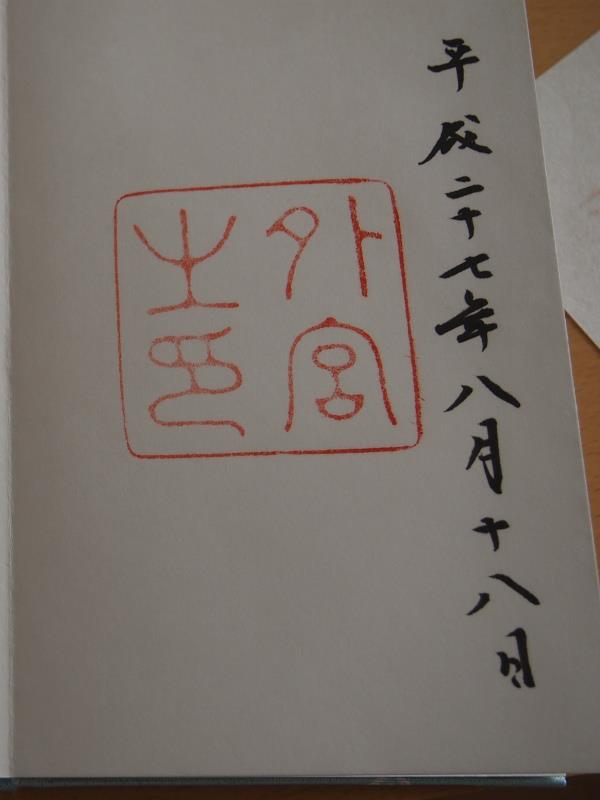 平成二十七年八月十八日
外宮
之印